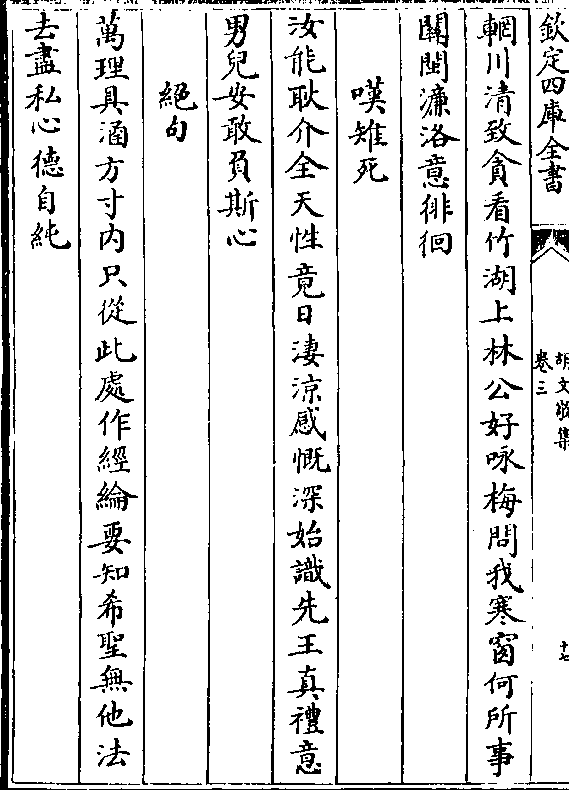 欽定四庫全書
胡文敬集
卷三
十七
輞川清致貪看竹湖上林公好咏梅問我寒窗何所事
關閩濂洛意徘徊
嘆雉死
汝能耿介全天性竟日淒涼感慨深始識先王真禮意
男兒安敢負斯心
絕句
萬理具涵方寸内只從此處作經綸要知希聖無他法
去盡私心德自純